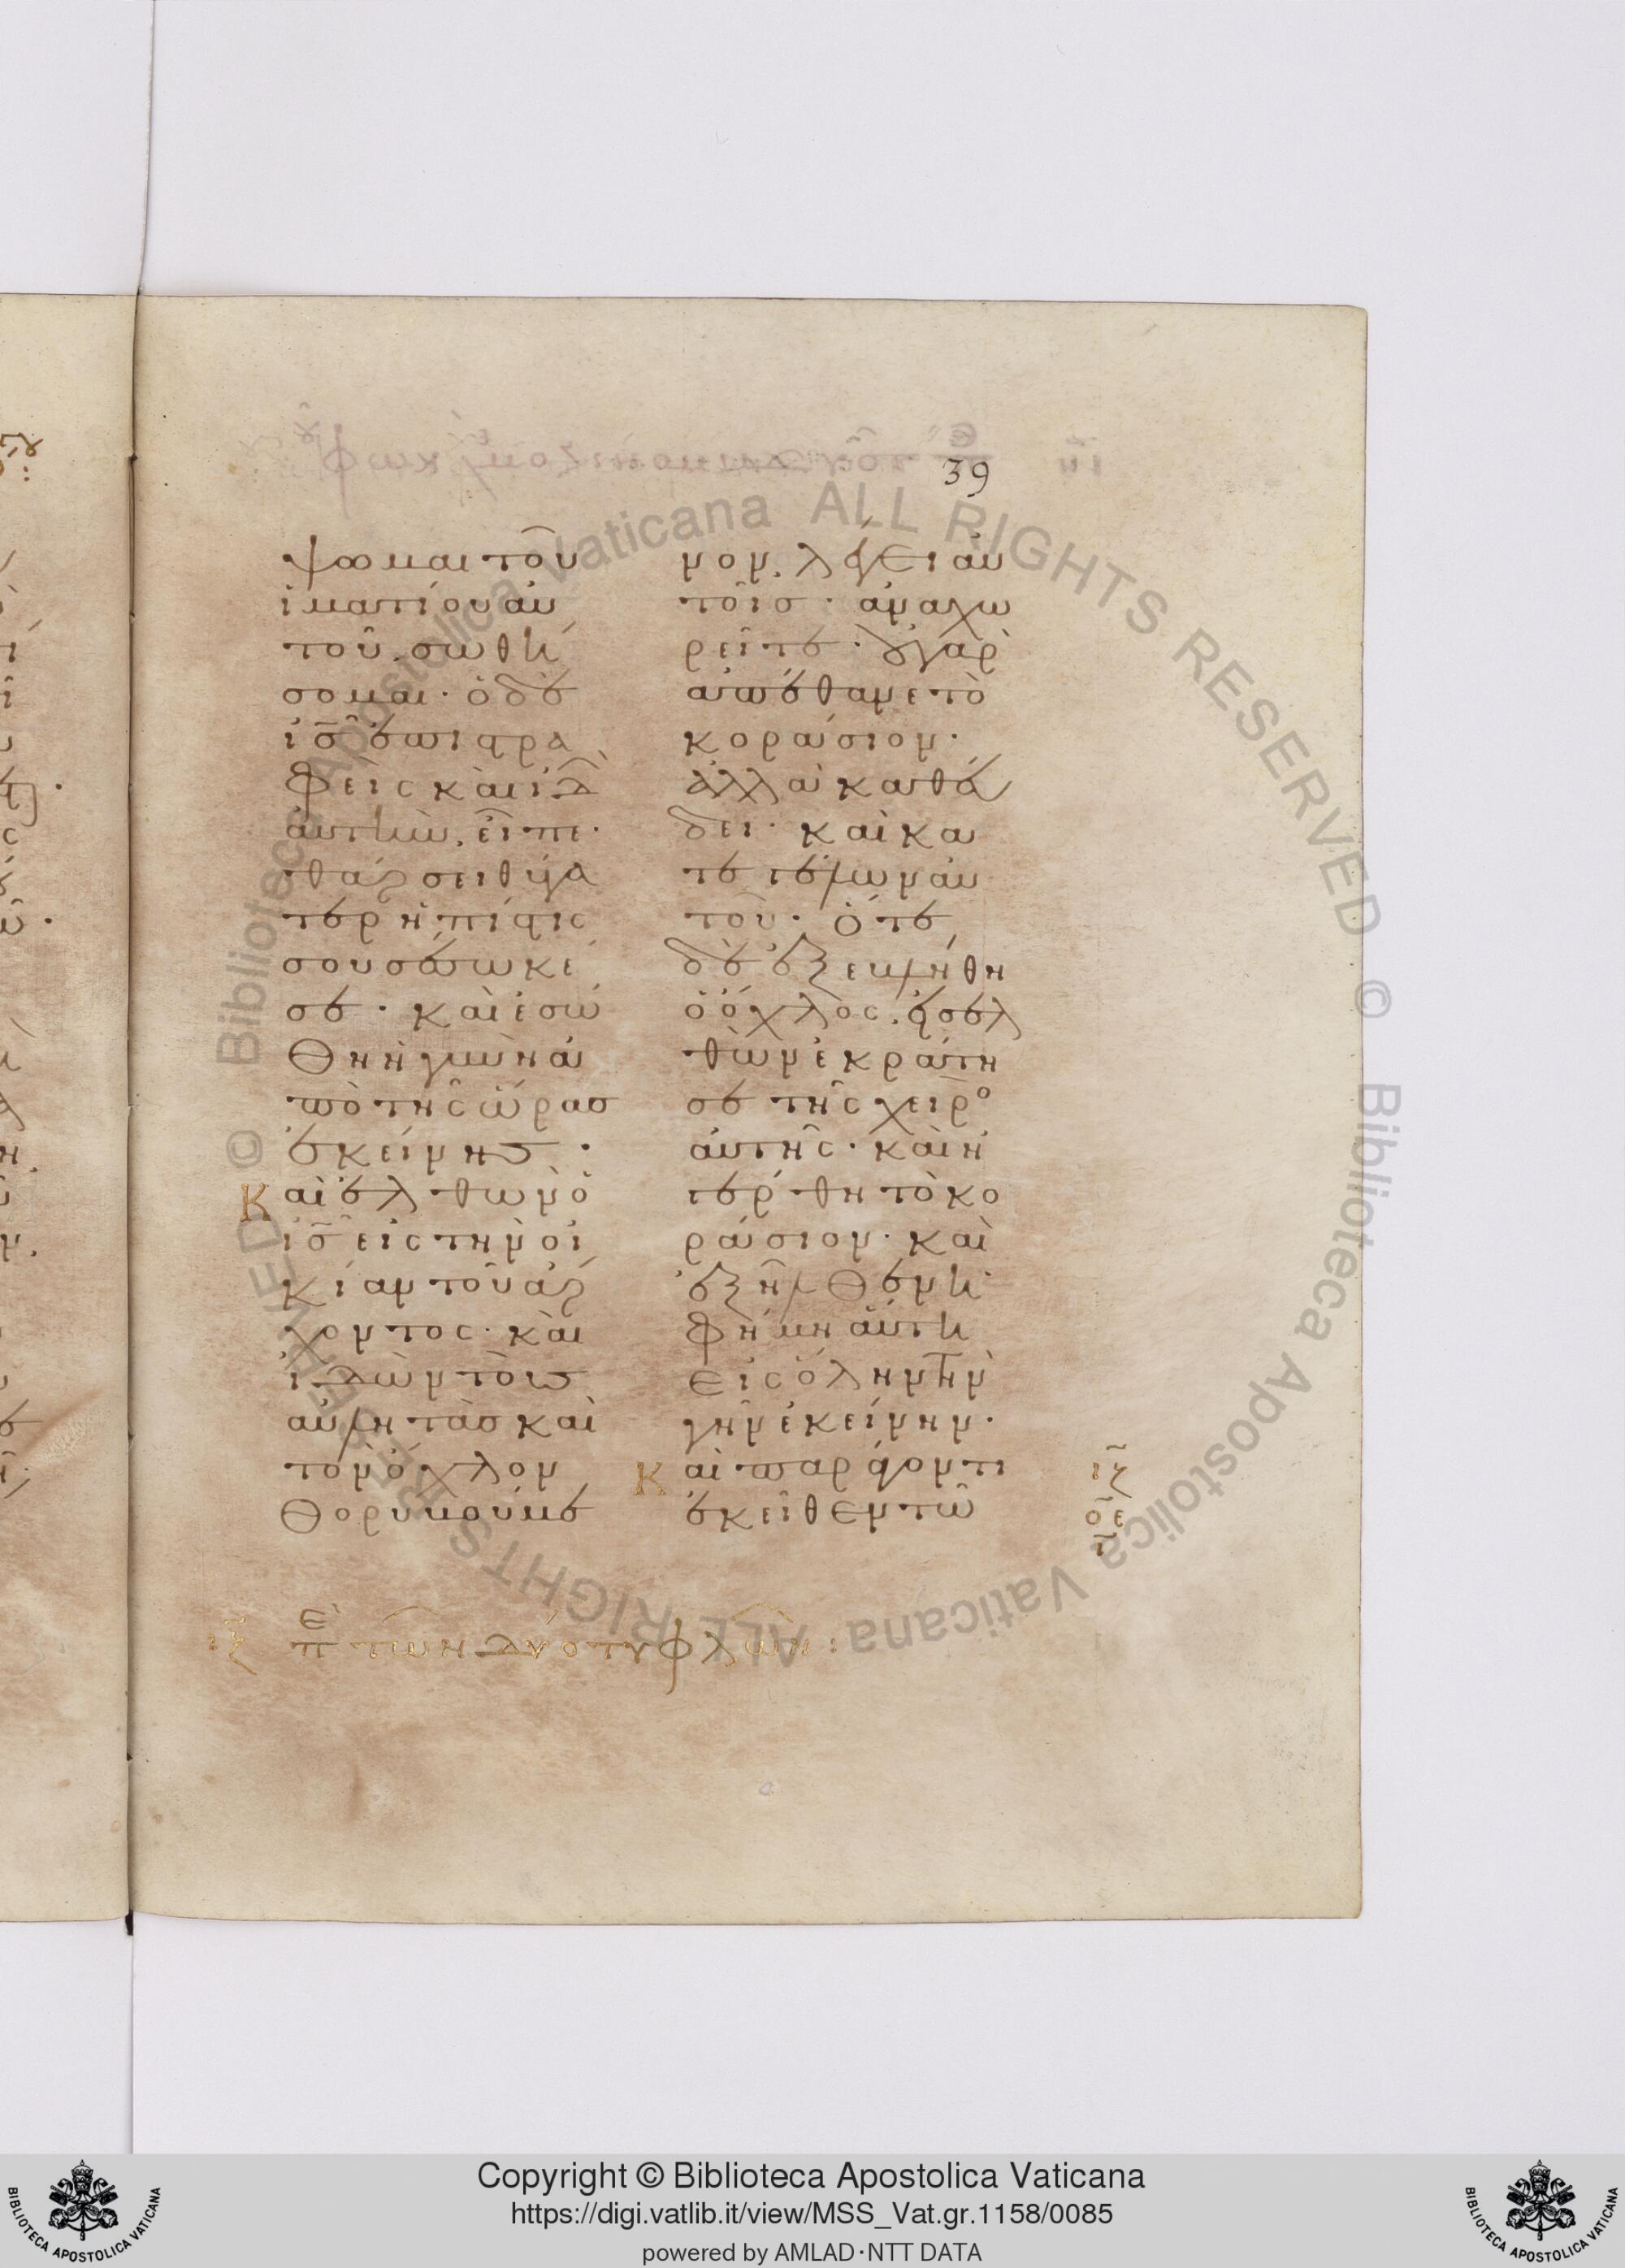 39
ψωμαι τοῦ
ἱματίου αὐ
τοῦ. σωθή
σομαι· ὁ δὲ
ἰς̅ ἐπιστρα
φεὶς καὶ ἰδὼ
αὐτὴν, εἶπε·
θάρσει θύγα
τερ ἡ πίστις
σου σέσωκέ
σε· καὶ ἐσώ
θη ἡ γυνὴ ἀ
πὸ τῆς ὥρας
ἐκείνης·
Καὶ ἐλθὼν ὁ
ἰς̅ εἰς τὴν οἰ
κίαν τοῦ ἄρ
χοντος· καὶ
ἰδὼν τοὺς
αὐλητὰς καὶ
τὸν ὄχλον
θορυβούμε
νον, λέγει αὐ
τοῖς· ἀναχω
ρεῖτε· οὐ γὰρ
ἀπέθανε τὸ
κοράσιον·
ἀλλὰ καθεύ
δει· καὶ κα
τεγέλων αὐ
τοῦ· ὅτε
δὲ ἐξεβλήθη
ὁ ὄχλος, εἰσελ
θὼν ἐκράτη
σε τῆς χειρο
αὐτῆς· καὶ ἠ
γέρθη τὸ κο
ράσιον· καὶ
ἐξῆλθεν ἡ
φήμη αὕτη
εἰς ὅλην τὴν
γῆν ἐκείνην·
Καὶ παράγοντι
ἐκεῖθεν τῶ
ιζ
οε
ιζ ἐπ τῶν δύο τυφλῶν:
Copyright © Biblioteca Apostolica Vaticana
https://digi.vatlib.it/view/MSS_Vat.gr.1158/0085
powered by AMLAD·NTT DATA